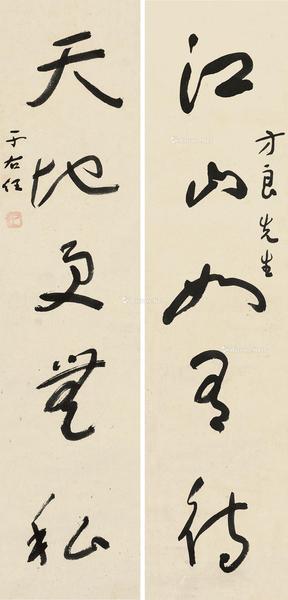 方良先生
江山如有待
天地更無私
于右任